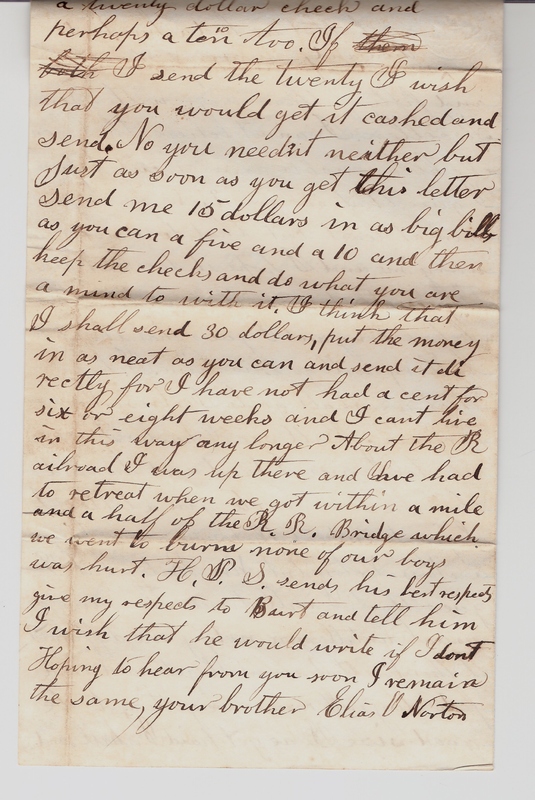 a twenty dollar check and
perhaps a ten too. If them
both I send the twenty I wish
that you would get it cashed and
send. No you needn't neither but
just as soon as you get this letter
send me 15 dollars in as big bills
as you can a five and a 10 and then
keep the checks and do what you are
a mind to with it. I think that
I shall send 30 dollars, put the money
in as neat as you can and send it di
rectly for I have not had a cent for
six or eight weeks and I cant live
in this way any longer About the R
ailroad I was up there and we had
to retreat when we got within a mile
and a half of the R. R. Bridge which
we went to burn none of our boys
was hurt. H. P. S. sends his best respects
give my respects to Burt and tell him
I wish that he would write if I dont
Hoping to hear from you soon I remain
the same, your brother Elias Norton